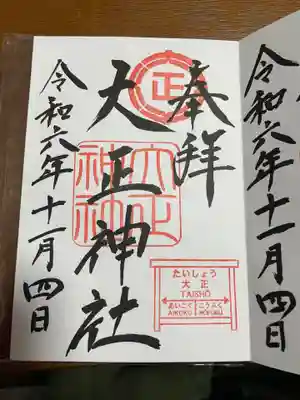 奉拝
正
大正神社
大正神社
令和六年十一月四日
たいしょう
大正
TAISHŌ
あいこく
こうふく
AIKOKU
KŌFUKU
令和六年十一月四日